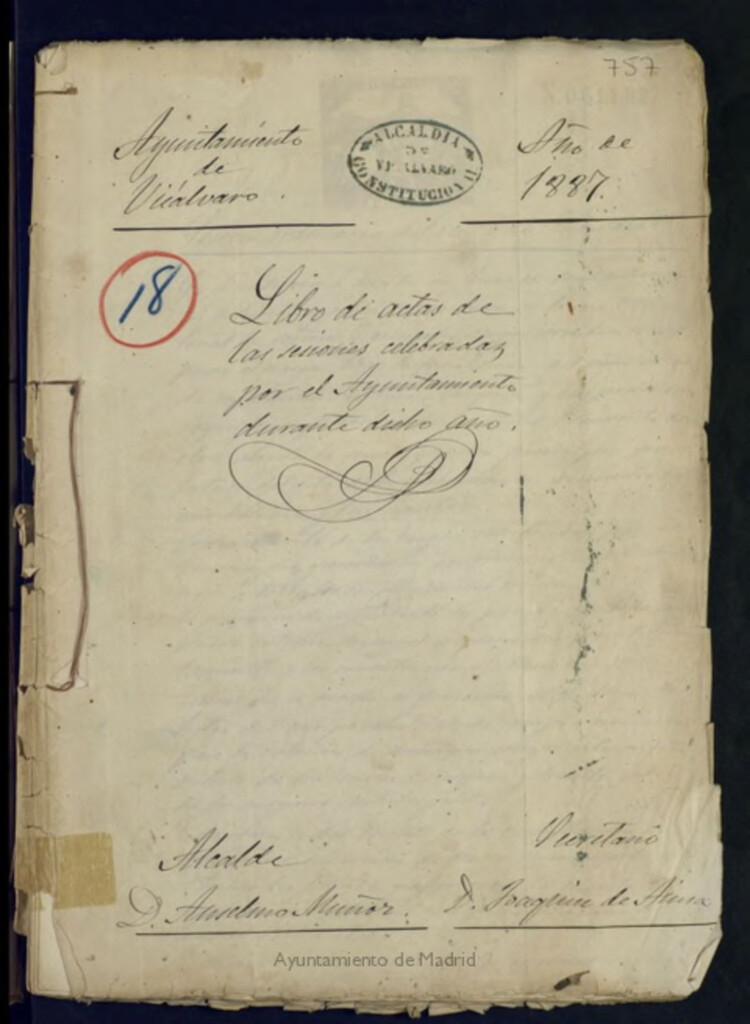 757
Ayuntamiento
de
Vicálvaro.
ALCALDIA
DE
VICALVARO
CONSTITUCIONAL
Año de
1887.
18
Libro de actas de
las sesiones celebradas
por el Ayuntamiento
durante dicho año.
Alcalde
D. Anselmo Muñoz.
Secretario
D. Joaquin de
Ayuntamiento de Madrid